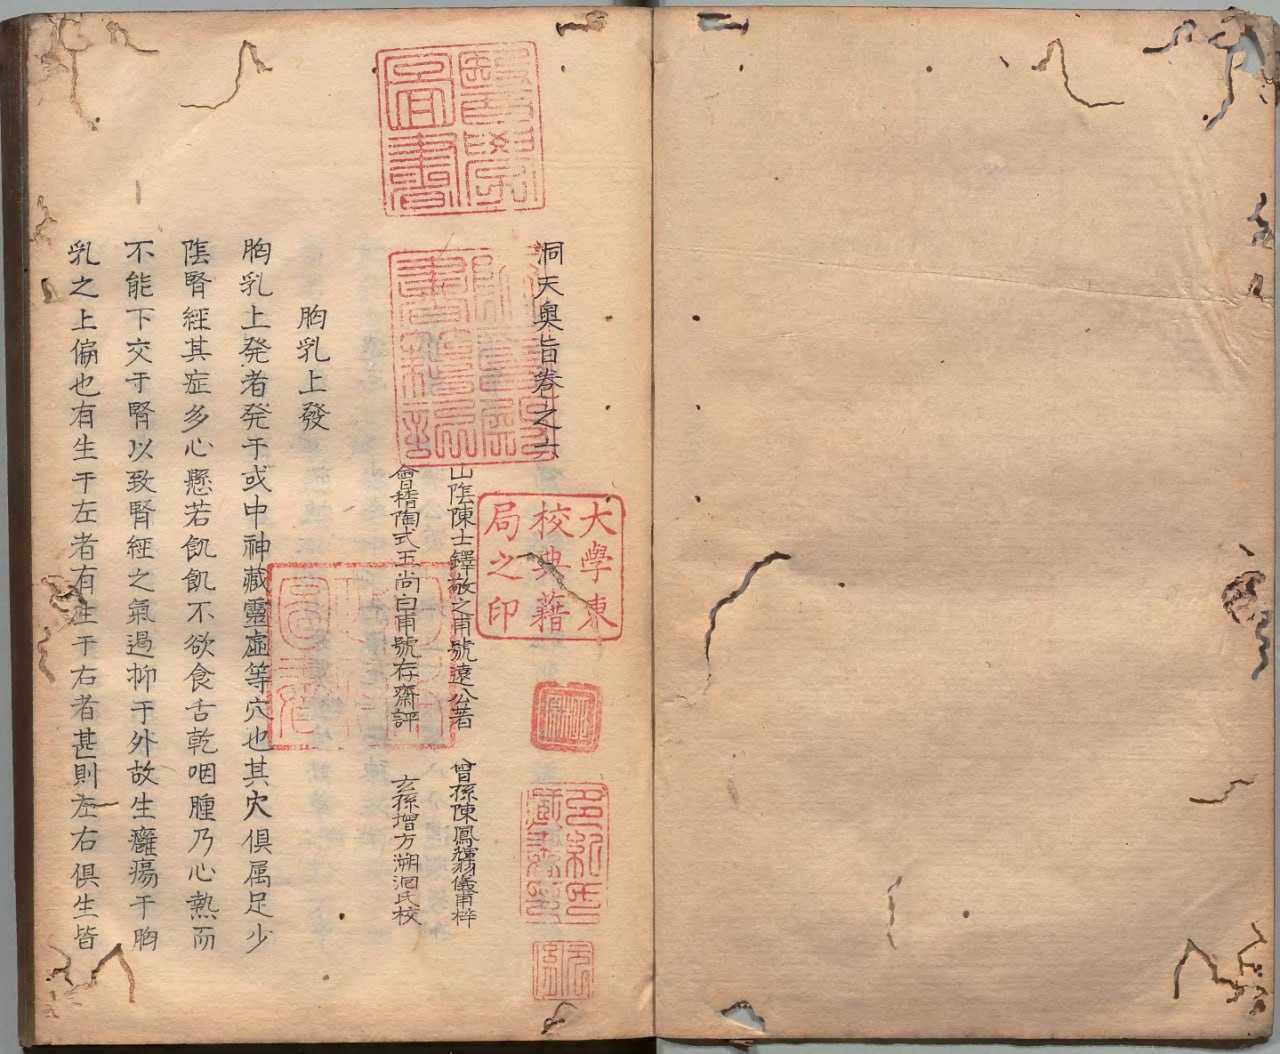 洞天奧旨卷之六
山陰陳士鐸敬之甫號遠公著　曾孫陳鳳輝羽儀甫梓
會稽陶式玉尚白甫號存齋評　玄孫增方溯洄氏校
胸乳上發
胸乳上発者発于或中神藏靈虛等穴也其穴俱属足少
陰腎經其症多心懸若飢飢不欲食舌乾咽腫乃心熱而
不能下交于腎以致腎經之氣過抑于外故生癰瘍于胸
乳之上偏也有生于左者有生于右者甚則左右俱生皆
醫學
圖書
大學東
校典藉
局之印
多紀氏
藏書印